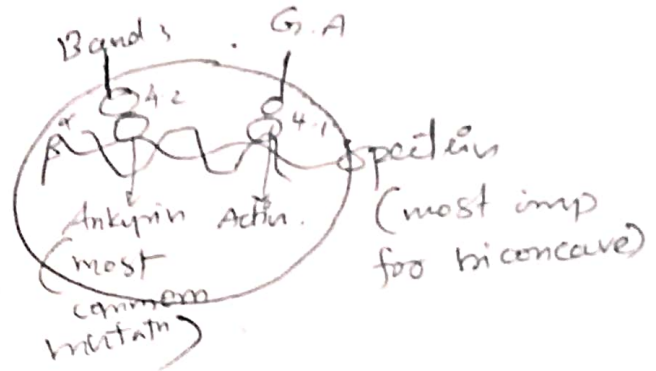 Band 3
G.A
4.2
4.1
α
β
Spectrin
(most imp
for biconcave)
Ankyrin
Actin.
(most
common
mutatn)